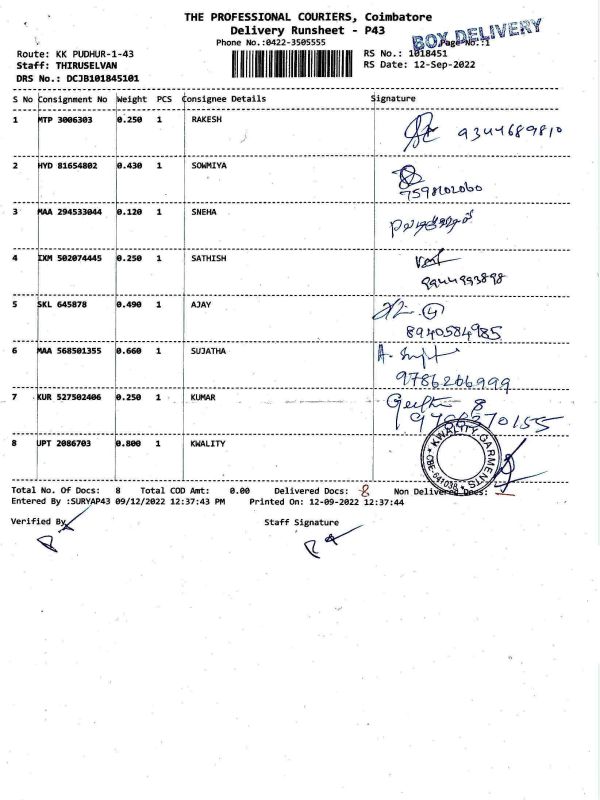 THE PROFESSIONAL COURIERS, Coimbatore
Delivery Runsheet - P43
BOX DELIVERY
Phone No.:0422-3505555
Page No.:1
Route: KK PUDHUR-1-43
RS No.: 1018451
Staff: THIRUSELVAN
RS Date: 12-Sep-2022
DRS No.: DCJB101845101
S No Consignment No Weight PCS Consignee Details Signature
1 MTP 3006303 0.250 1 RAKESH 9344689810
2 HYD 81654802 0.430 1 SOWMIYA
7598202060
3 MAA 294533044 0.120 1 SNEHA
4 IXM 502074445 0.250 1 SATHISH
9944993898
5 SKL 645878 0.490 1 AJAY
8940584985
6 MAA 568501355 0.660 1 SUJATHA
9786266999
7 KUR 527502406 0.250 1 KUMAR
8 UPT 2086703 0.800 1 KWALITY
KWALITY GARMENTS
CBE-641038
Total No. Of Docs: 8 Total COD Amt: 0.00 Delivered Docs: 8 Non Delivered Docs:
Entered By :SURYAP43 09/12/2022 12:37:43 PM Printed On: 12-09-2022 12:37:44
Verified By
Staff Signature